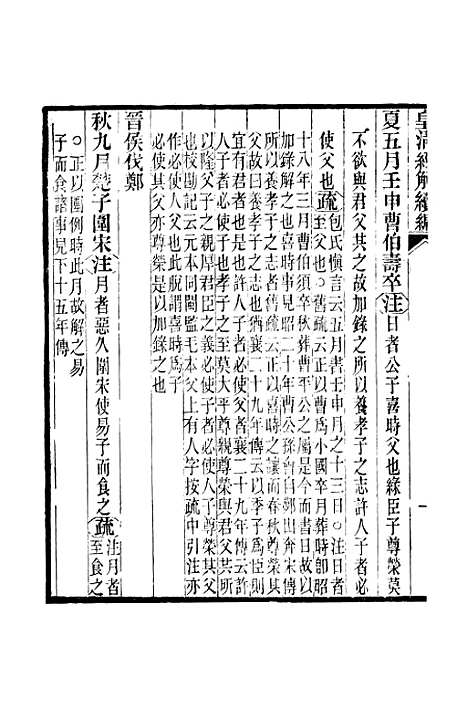 皇淸經解續編
夏五月壬申曹伯壽卒注日者公子喜時父也緣臣子尊榮莫
不欲與君父共之故加錄之所以養孝子之志許人子者必
使父也疏包氏愼言云五月書壬申月之十三日○注日者
至父也○舊疏云正以曹爲小國卒月葬時卽昭
十八年三月曹伯須卒秋葬曹平公之屬是今而書日故以
加錄解之也喜時事見昭二十年曹公孫會自鄸出奔宋傳
所以養孝子之志者舊疏云正以喜時之讓而春秋尊榮其
父故曰養孝子之志也猶襄二十九年傳云以季子爲臣則
宜有君者也是也許人子者必使父者襄二十九年傳云許
人子者必使子也孝子之至莫大乎尊親尊榮與君父共所
以隆父子之親厚君臣之義必使子者必使人子尊榮其父
也校勘記云元本同閩監毛本父上有人字按疏中引注亦
作必使人父也此脫謂喜時爲子
必使其父亦尊榮是以加錄之也
晉侯伐鄭
秋九月楚子圍宋注月者惡久圍宋使易子而食之疏注月者
至食之
○正以圍例時此月故解之易
子而食諸事見下十五年傳